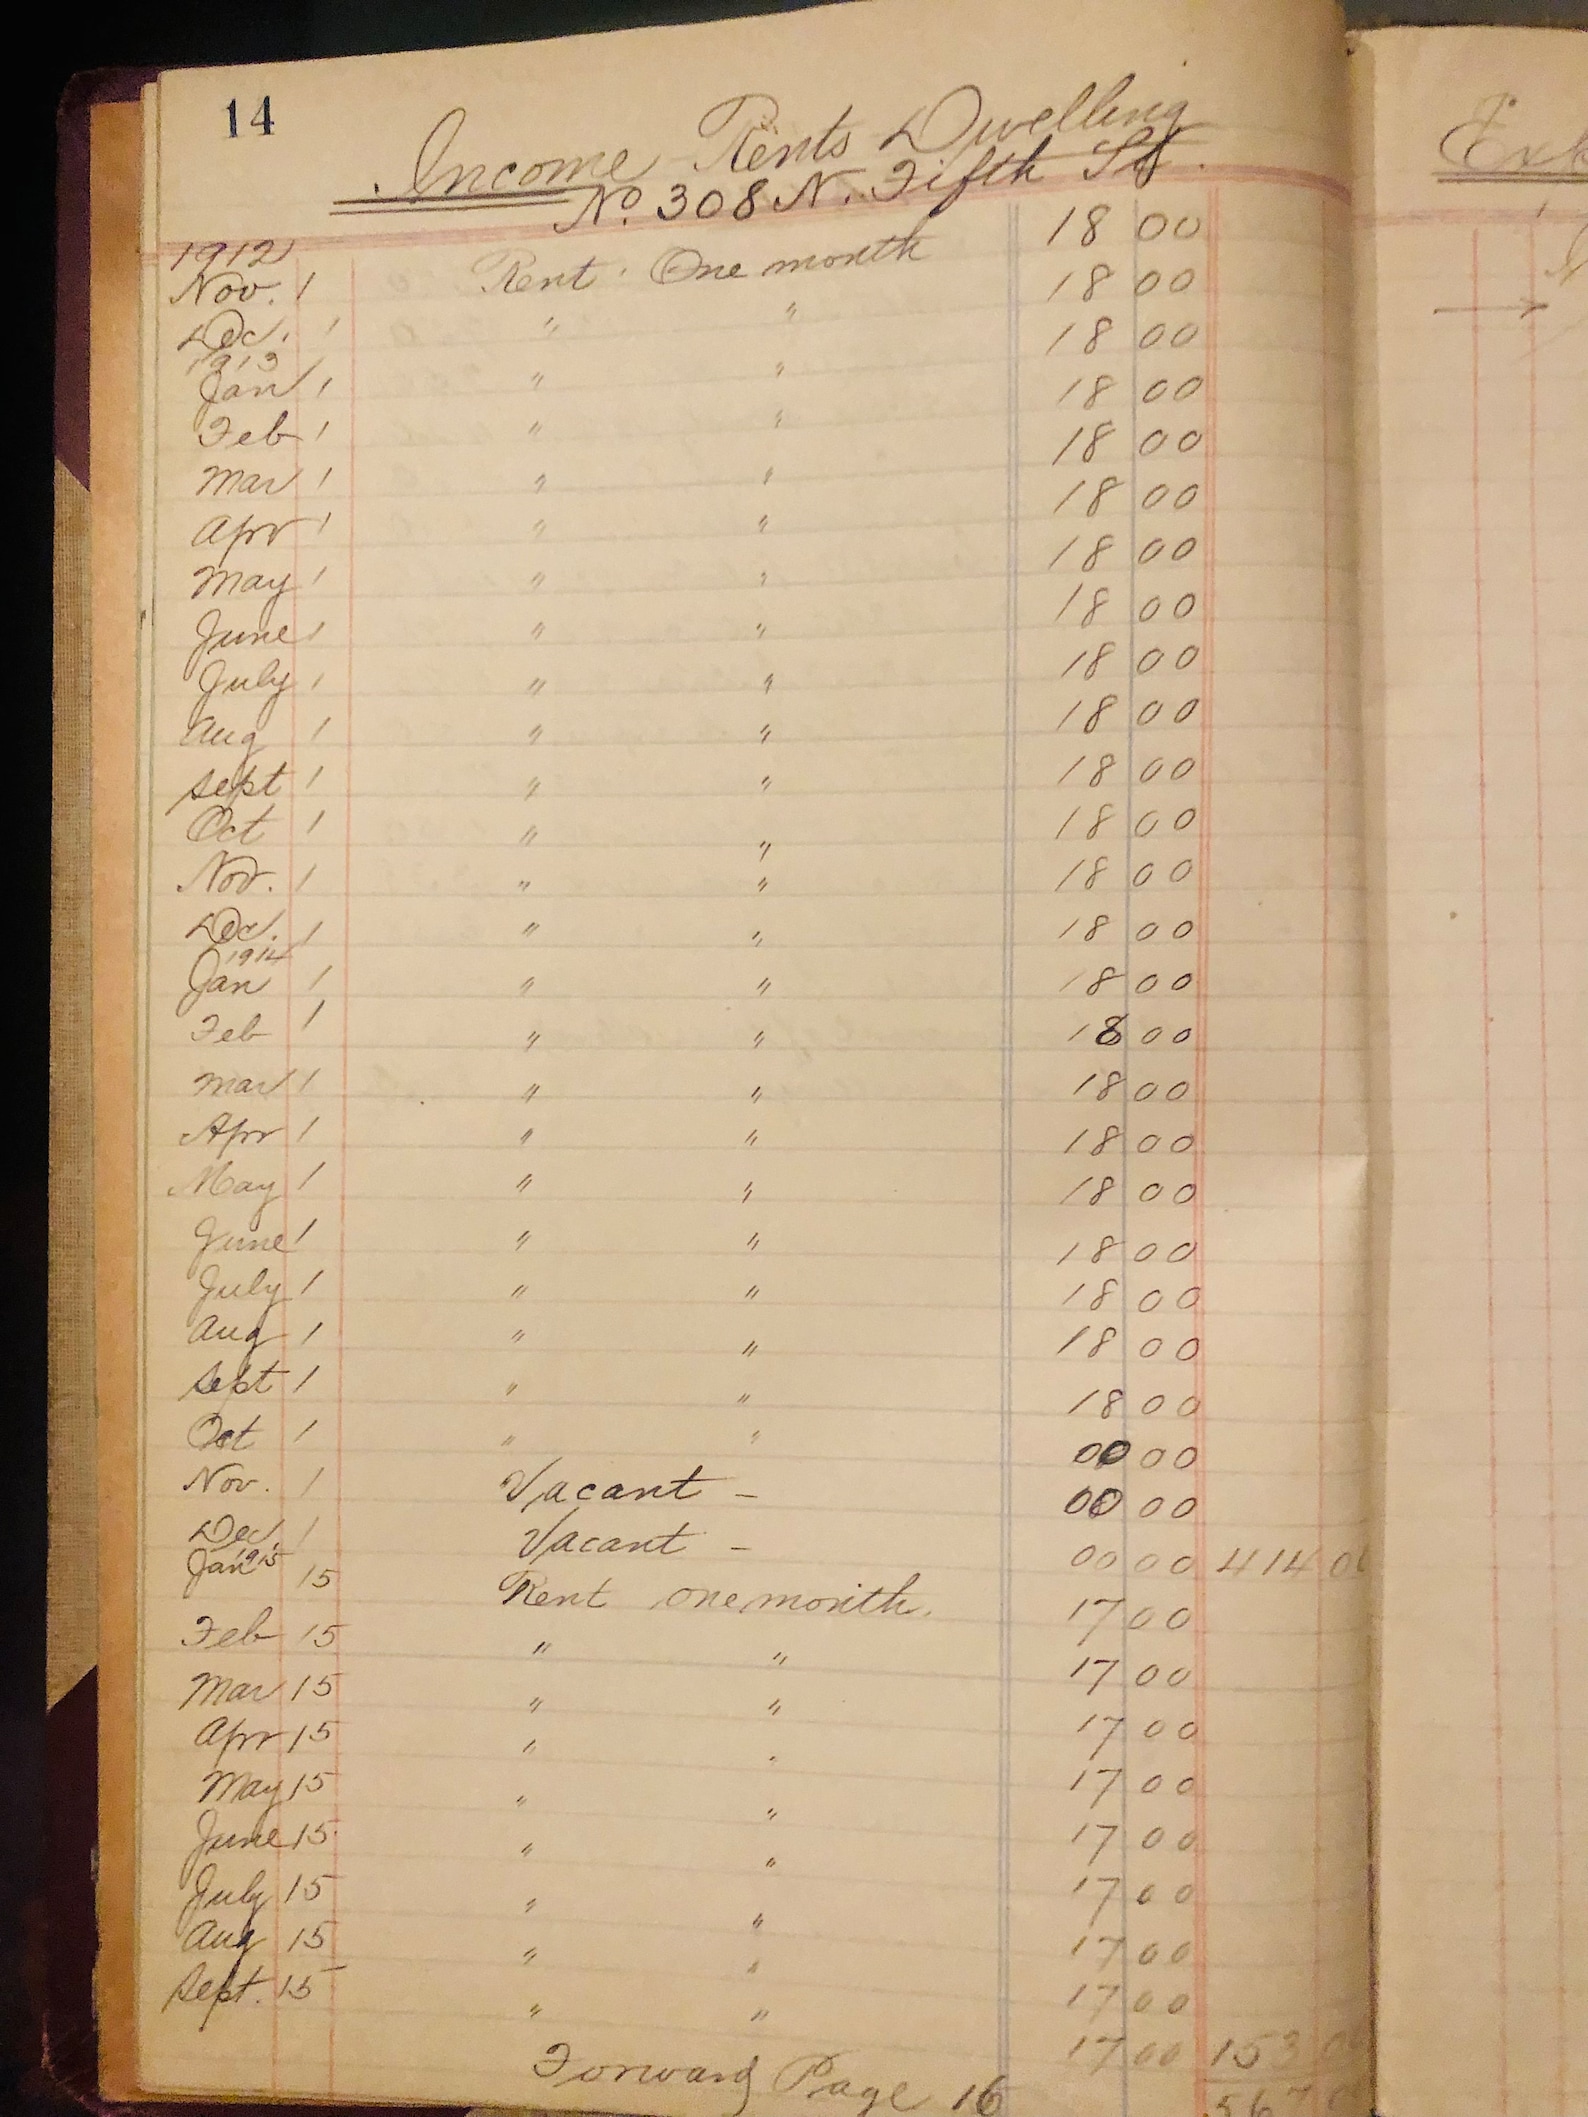 14
Income Rents Dwelling
No. 308 N. Fifth St.
1912
Nov. 1 Rent. One month 18 00
Dec. 1 " " 18 00
1913
Jan 1 " " 18 00
Feb 1 " " 18 00
Mar 1 " " 18 00
Apr 1 " " 18 00
May 1 " " 18 00
June 1 " " 18 00
July 1 " " 18 00
Aug 1 " " 18 00
Sept 1 " " 18 00
Oct 1 " " 18 00
Nov. 1 " " 18 00
Dec. 1 " " 18 00
1914
Jan 1 " " 18 00
Feb 1 " " 18 00
Mar 1 " " 18 00
Apr 1 " " 18 00
May 1 " " 18 00
June 1 " " 18 00
July 1 " " 18 00
Aug 1 " " 18 00
Sept 1 " " 18 00
Oct 1 " " 00 00
Nov. 1 Vacant - 00 00
Dec. 1 Vacant - 00 00 414 00
1915
Jan 15 Rent one month. 17 00
Feb 15 " " 17 00
Mar 15 " " 17 00
Apr 15 " " 17 00
May 15 " " 17 00
June 15 " " 17 00
July 15 " " 17 00
Aug 15 " " 17 00
Sept. 15 " " 17 00 153 00
Forward Page 16 567 00